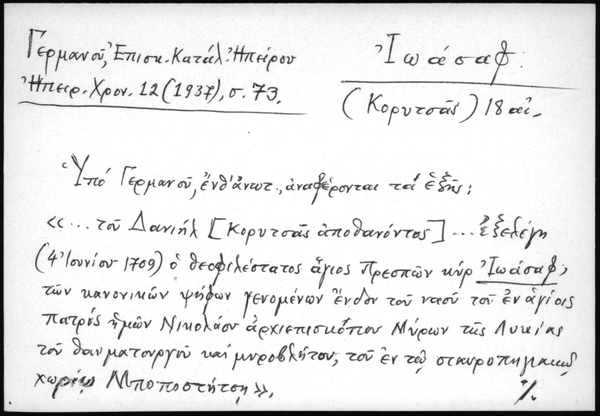 Γερμανοῦ, Ἐπισκ. Κατάλ. Ἠπείρου
Ἠπειρ. Χρον. 12 (1937), σ. 73.
Ἰωάσαφ:
(Κορυτσᾶς) 18 αἰ.
Ὑπό Γερμανοῦ, ἔνθ' ἀνωτ., ἀναφέρονται τά ἑξῆς:
«... τοῦ Δανιήλ [Κορυτσᾶς ἀποθανόντος] ... ἐξελέγη
(4 Ἰουνίου 1709) ὁ θεοφιλέστατος ἅγιος Πρεσπῶν κύρ Ἰωάσαφ,
τῶν κανονικῶν ψήφων γενομένων ἔνδον τοῦ ναοῦ τοῦ ἐν ἁγίοις
πατρός ἡμῶν Νικολάου ἀρχιεπισκόπου Μύρων τῆς Λυκίας
τοῦ θαυματουργοῦ καί μυροβλήτου, τοῦ ἐν τῷ σταυροπηγιακῷ
χωρίῳ Μποποστήτσῃ»,
%